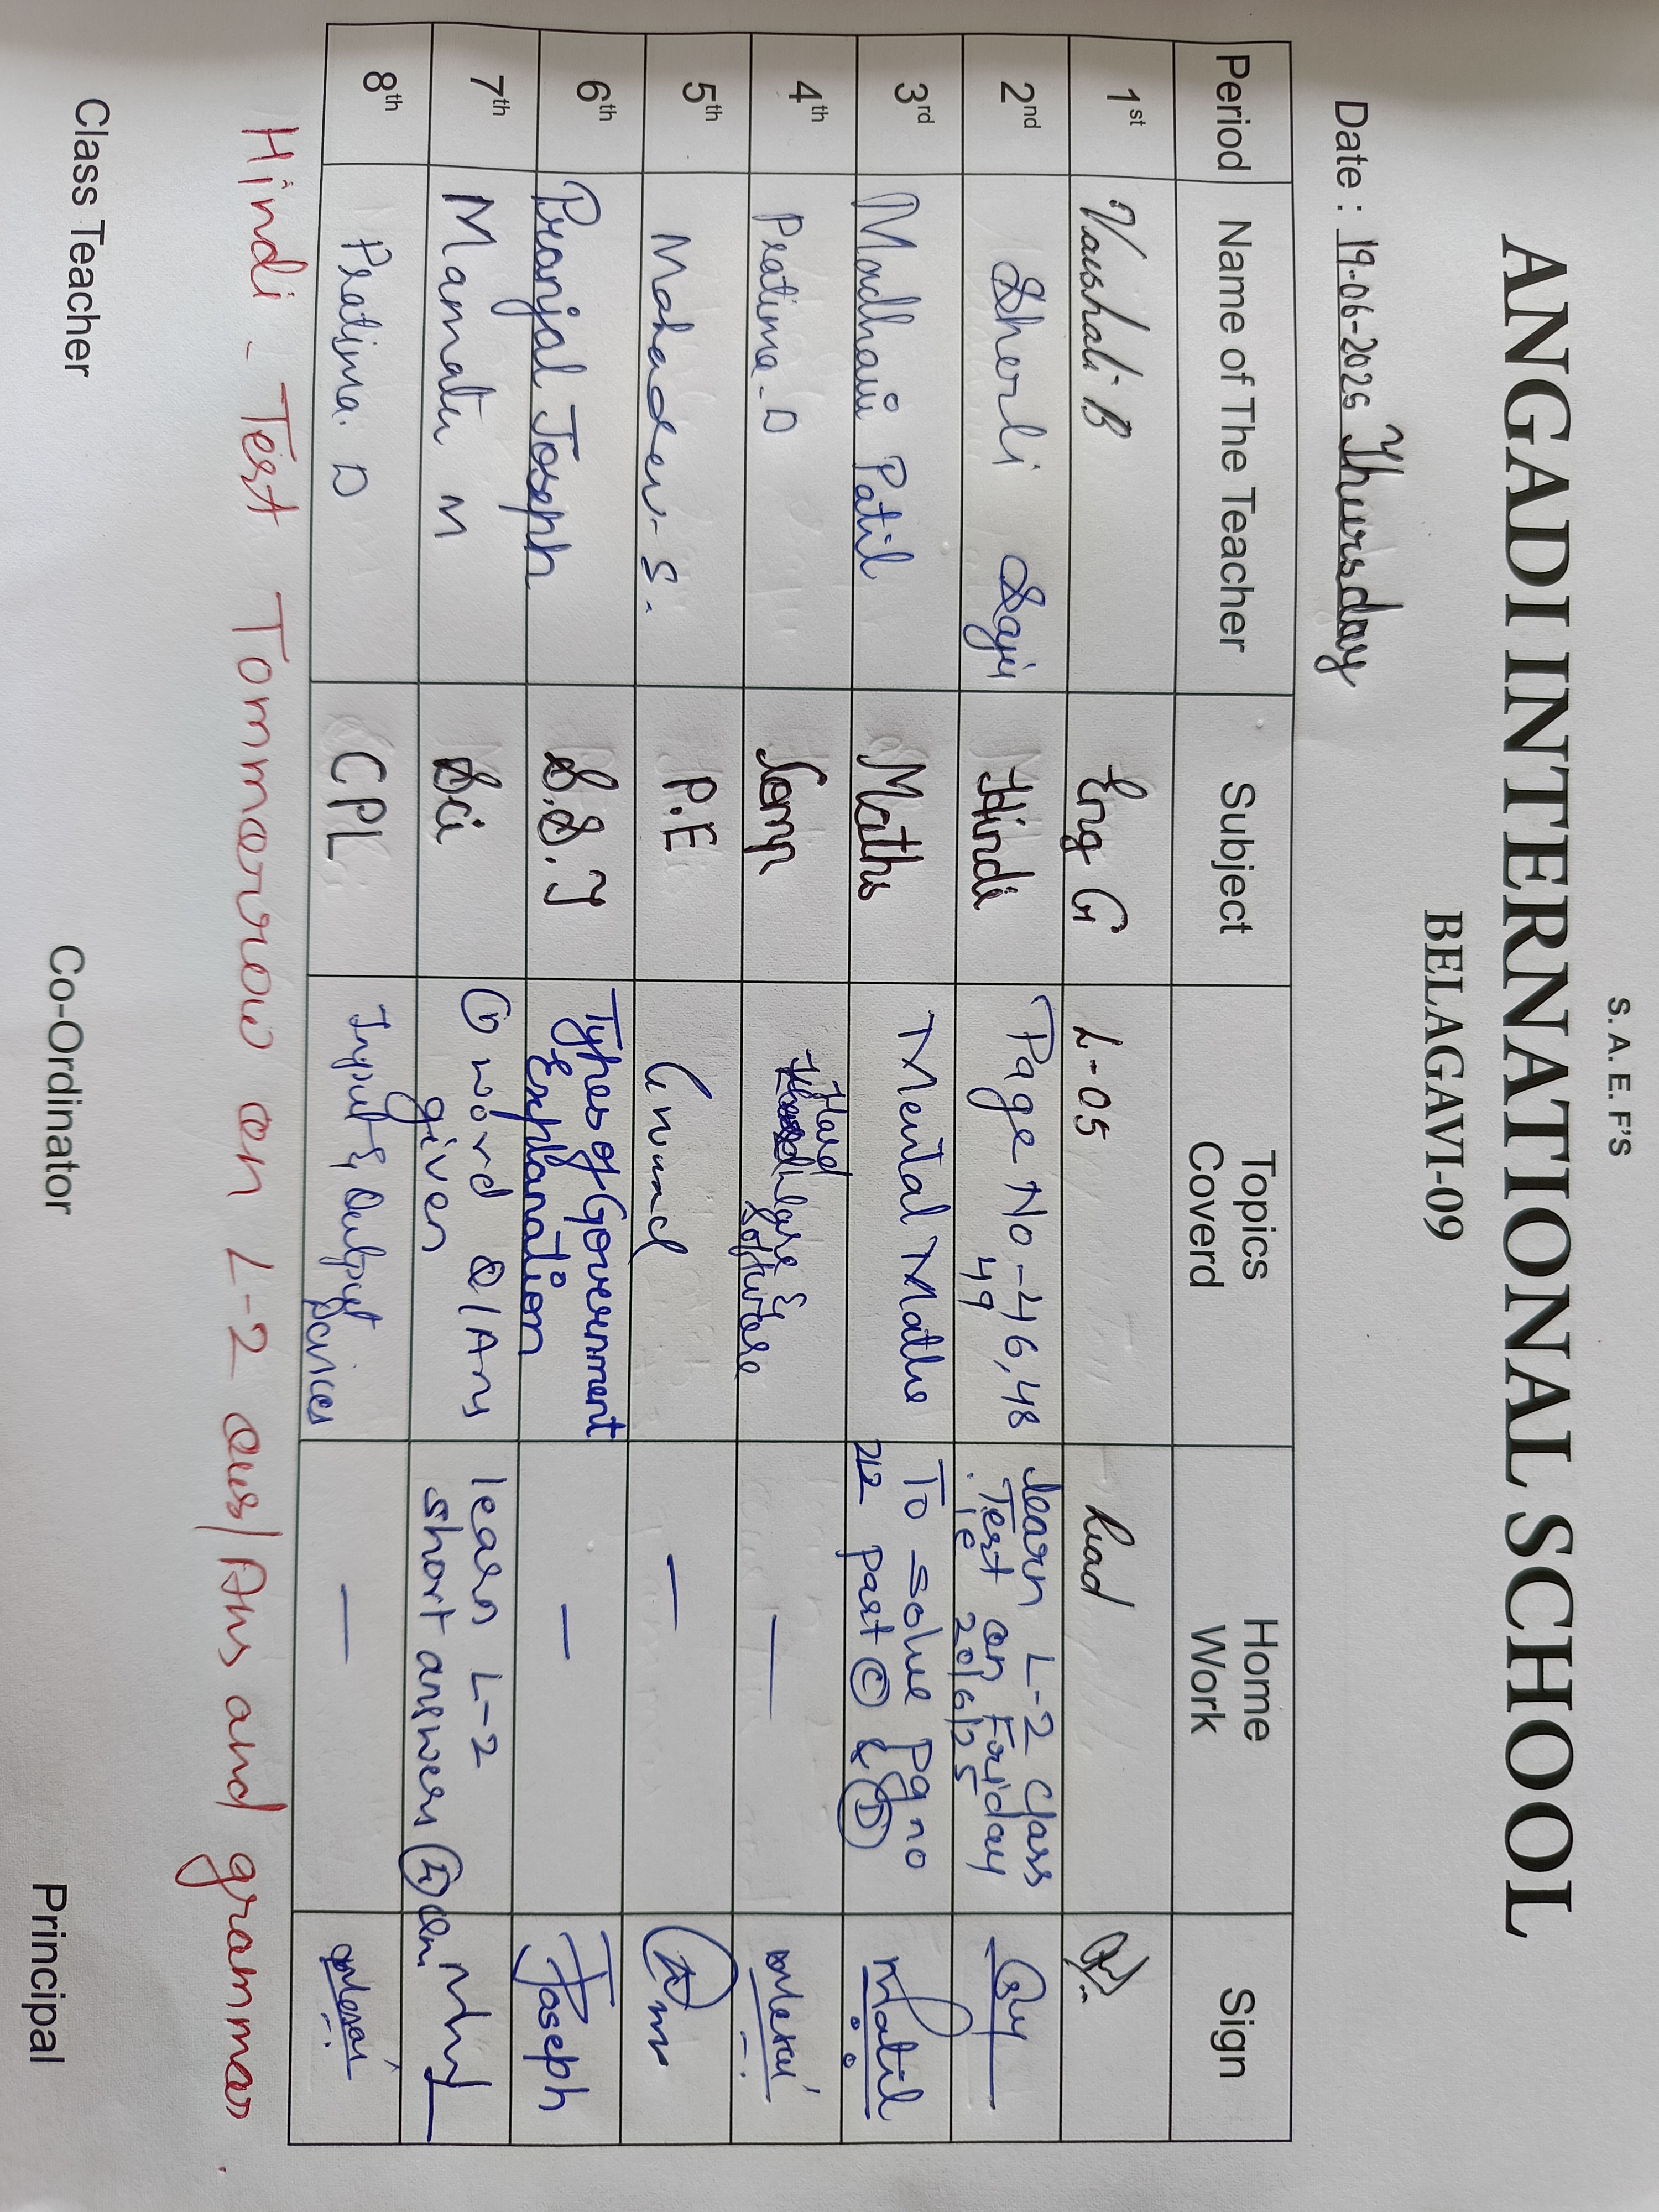 S. A. E. F'S
ANGADI INTERNATIONAL SCHOOL
BELAGAVI-09
Date : 19-06-2025 Thursday
Period Name of The Teacher Subject Topics Coverd Home Work Sign
1st Vaishali B Eng G L-05 Read
2nd Sherli Saji Hindi Page No-46,48 49 learn L-2 class Test on Friday 20/6/25
3rd Madhavi Patil Maths Mental Maths To solve Pg no 212 part C & D
4th Pratima. D Comp Hard &
5th Mahadev. S. P.E Ground —
6th Pranjal Joseph S.S.T Types of Government Explanation — Joseph
7th Mamata M Sci word Q/Ans given learn L-2 short answers
8th Pratima. D CPL Input & Output Devices —
Hindi - Test Tommorrow on L-2 Ques/Ans and grammar
Class Teacher Co-Ordinator Principal